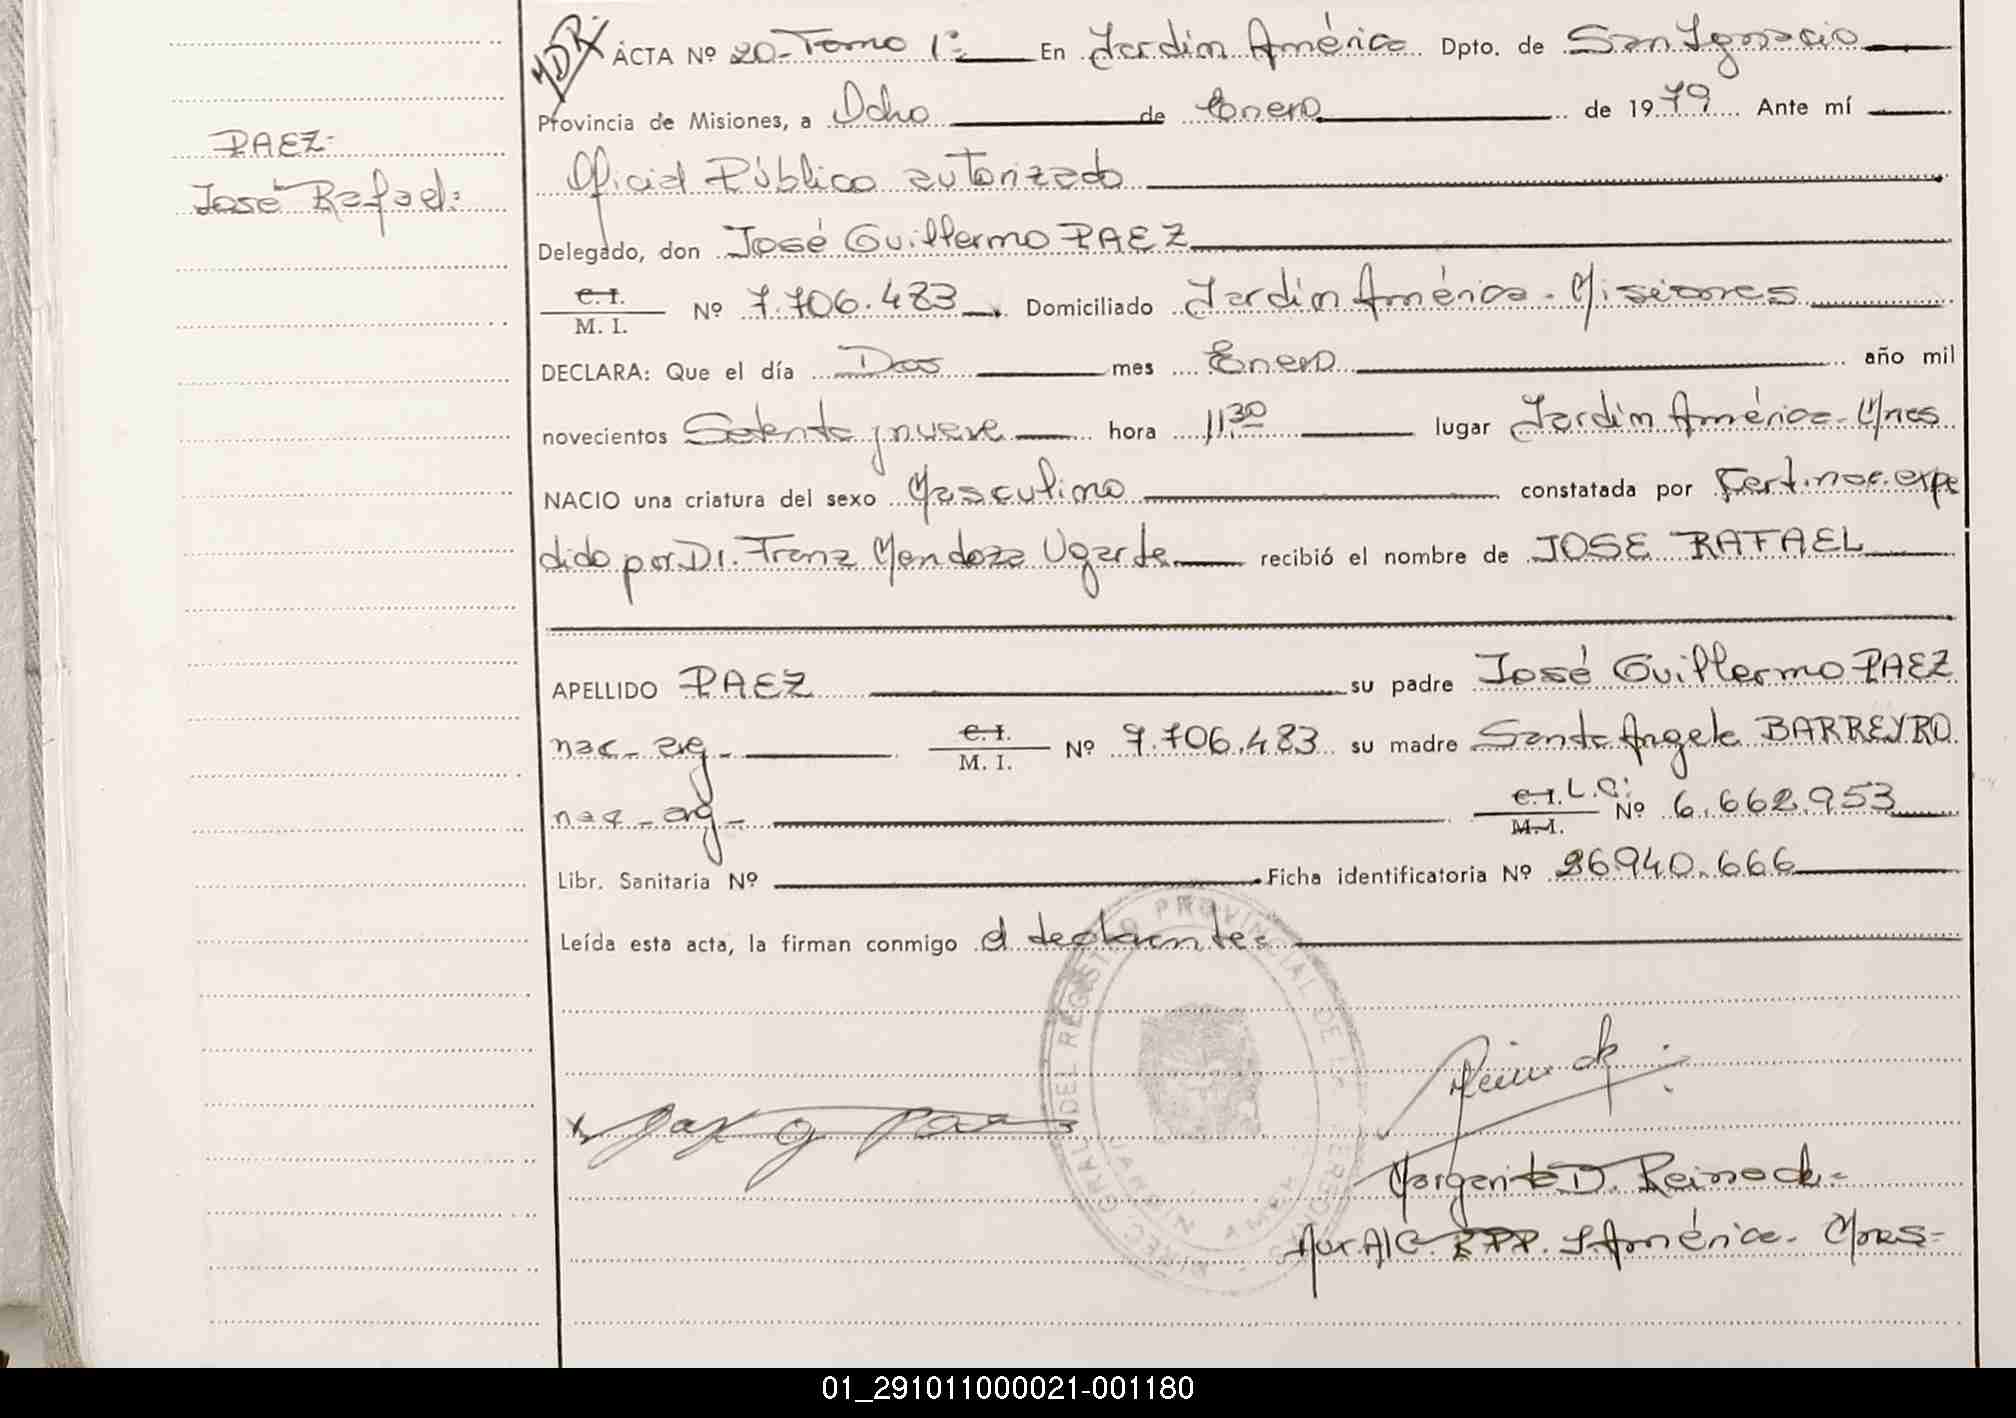 PAEZ-
José Rafael:
MDR
ACTA Nº 20- Tomo 1º En Jardín América Dpto. de San Ignacio
Provincia de Misiones, a Ocho de Enero de 1979 Ante mí
Oficial Público autorizado
Delegado, don José Guillermo PAEZ
C. I.
M. I. Nº 7.706.483 Domiciliado Jardín América - Misiones
DECLARA: Que el día Dos mes Enero año mil
novecientos Setenta y nueve hora 11,30 lugar Jardín América - Mnes
NACIO una criatura del sexo Masculino constatada por Cert. nac. expe
dido por Dr. Franz Mendoza Ugarte recibió el nombre de JOSE RAFAEL
APELLIDO PAEZ su padre José Guillermo PAEZ
nac - arg - C. I.
M. I. Nº 7.706.483 su madre Santa Angela BARREYRO
nac - arg - C. I. L.C:
M. I. Nº 6.662.953
Libr. Sanitaria Nº Ficha identificatoria Nº 26940.666
Leída esta acta, la firman conmigo el declarante:
DIREC. GRAL. DEL REGISTRO PROVINCIAL DE
Margarita D. Reineck =
Aux. A/C. RPP. J. América - Mnes -
01_291011000021-001180